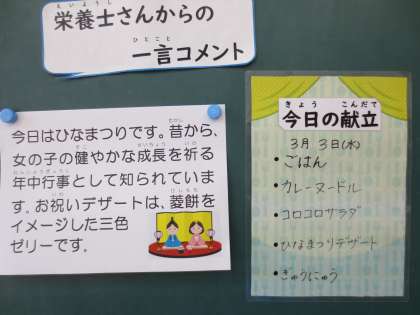 栄養士さんからの
一言コメント
今日はひなまつりです。昔から、
女の子の健やかな成長を祈る
年中行事として知られていま
す。お祝いデザートは、菱餅を
イメージした三色
ゼリーです。
今日の献立
3月 3日(水)
・ごはん
・カレーヌードル
・コロコロサラダ
・ひなまつりデザート
・ぎゅうにゅう